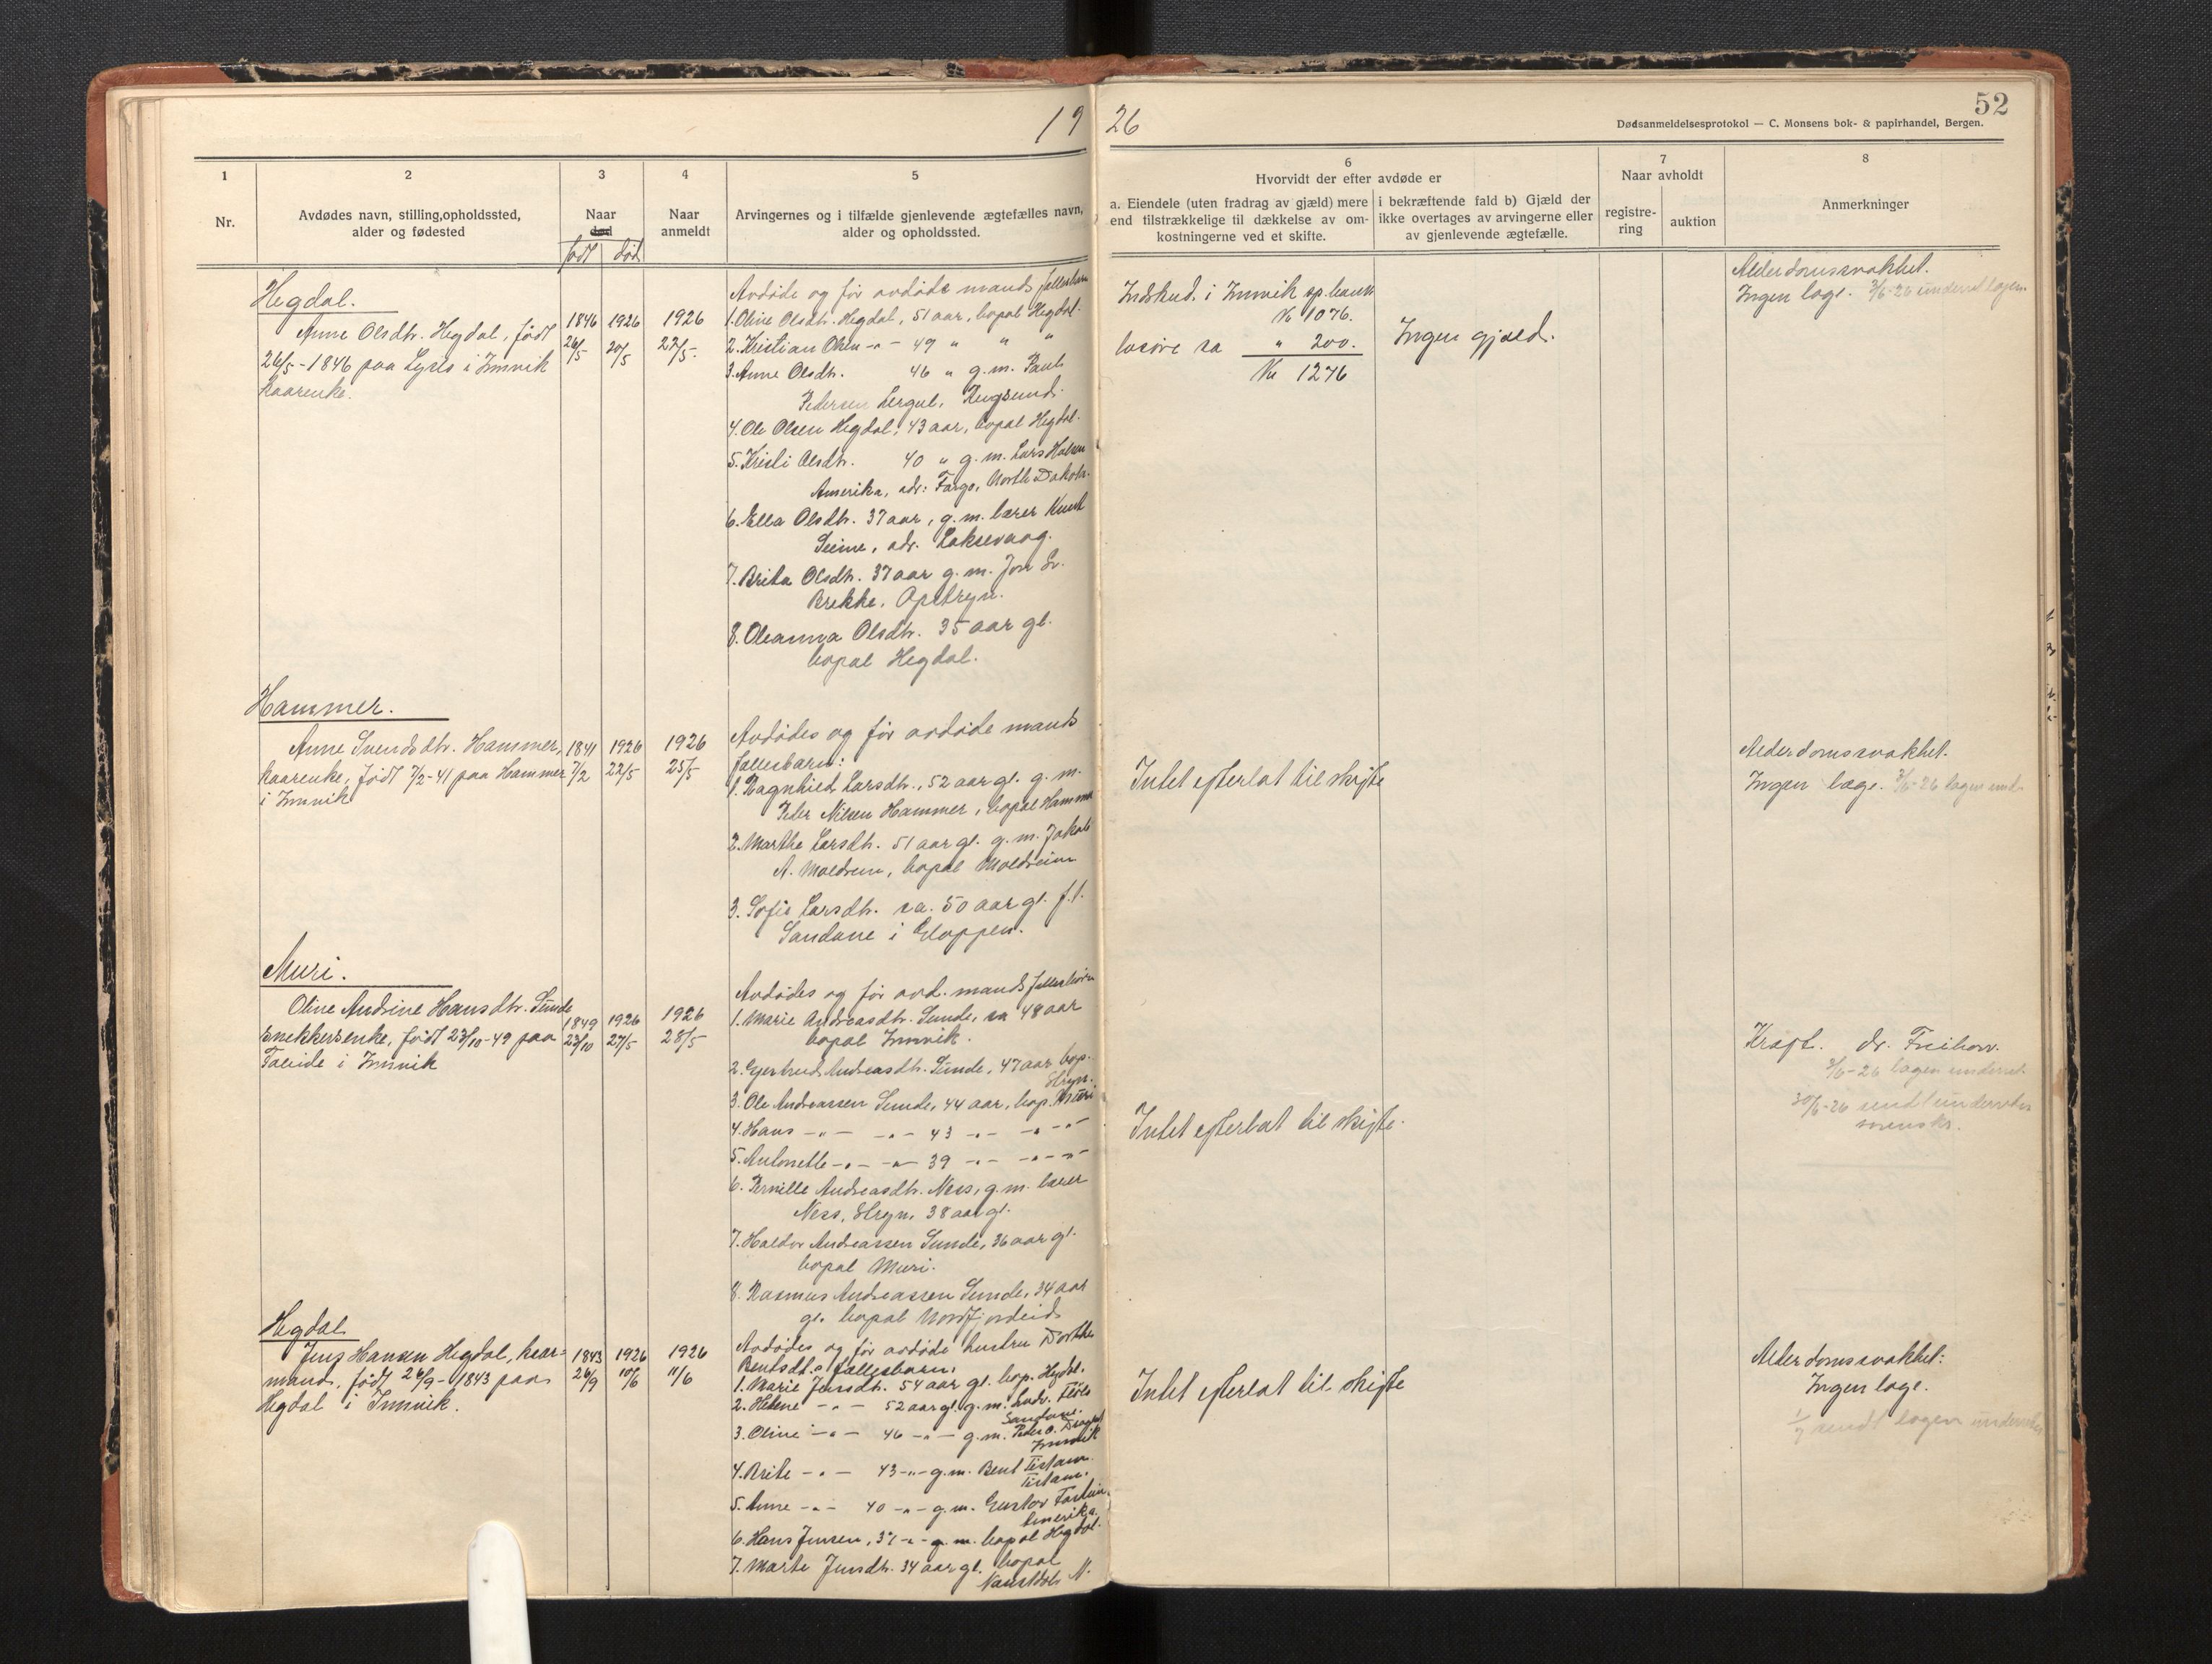 19 26
52
Dødsanmeldelsesprotokol — C. Monsens bok- & papirhandel, Bergen.
1
Nr.
2
Avdødes navn, stilling, opholdssted,
alder og fødested
3
Naar
død
født død
4
Naar
anmeldt
5
Arvingernes og i tilfælde gjenlevende ægtefælles navn,
alder og opholdssted.
6
Hvorvidt der efter avdøde er
a. Eiendele (uten fradrag av gjæld) mere
end tilstrækkelige til dækkelse av om-
kostningerne ved et skifte.
i bekræftende fald b) Gjæld der
ikke overtages av arvingerne eller
av gjenlevende ægtefælle.
7
Naar avholdt
registre-
ring
auktion
8
Anmerkninger
Hegdal.
Anne Olsdtr. Hegdal, født
26/5-1846 paa i Innvik
kaarenke.
1846 1926 1926
26/5 20/5 22/5.
Avdøde og før avdøde mands fellesbarn
1. Oline Olsdtr. Hegdal, 51 aar, bopæl Hegdal.
2. Kristian Olsen -"- 49 " " "
3. Anne Olsdtr. 46 " g.m. Paul
Pedersen Rugsund.
4. Ole Olsen Hegdal, 43 aar, bopæl Hegdal.
5. Kristi Olsdtr. 40 " g.m. Lars
Amerika, adr: Fargo, North Dakota.
6. Ella Olsdtr. 37 aar, g.m. lærer Knut
Seime, adr. Laksevaag.
7. Brita Olsdtr. 37 aar g.m. Jon Sv.
Brekke, Opstryn.
8. Oleanna Olsdtr. 35 aar gl.
bopæl Hegdal.
Indskud i Innvik sp.bank
Kr 1076.
løsøre ca " 200.
Kr 1276
Ingen gjæld.
Alderdomssvakhet.
Ingen læge. 3/6-26 underret lægen.
Hammer.
Anne Svendsdtr. Hammer,
kaarenke, født 7/2-41 paa Hammer
i Innvik
1841 1926 1926
7/2 22/5 25/5
Avdødes og før avdøde mands
fællesbarn:
1. Ragnhild Larsdtr., 52 aar gl. g.m.
Peder Nilsen Hammer, bopæl Hammer
2. Marthe Larsdtr. 51 aar gl. g.m. Jakob
A. Moldrem, bopæl Moldreim
3. Sofie Larsdtr. ca. 50 aar gl. f.t.
Sandane i Gloppen.
Intet efterlat til skifte
Alderdomssvakhet.
Ingen læge. 3/6-26 lægen und.
Muri.
Oline Andrine Hansdtr. Sunde
snekkerenke, født 23/10-49 paa
Faleide i Innvik
1849 1926 1926
23/10 27/5 28/5
Avdødes og før avd. mands fellesbarn
1. Marie Andreasdtr. Sunde, ca 48 aar
bopæl Innvik.
2. Gjertrud Andreasdtr. Sunde, 47 aar bop.
Stryn.
3. Ole Andreassen Sunde, 44 aar, bop. Muri
4. Hans -"- -"- 43 -"- -"-
5. Antonette -"- -"- 39 -"- -"-
6. Pernille Andreasdtr. Ness, g.m. lærer
Ness, Stryn, 38 aar gl.
7. Haldor Andreassen Sunde, 36 aar gl.
bopæl Muri.
8. Rasmus Andreassen Sunde, 34 aar
gl. bopæl Nordfjordeid
Intet efterlat til skifte.
Kræft. dr.
3/6-26 lægen underret
30/6-26 sendt underretn.
sorenskr.
Hegdal
Jens Hansen Hegdal, kaar-
mand, født 26/9-1843 paa
Hegdal i Innvik.
1843 1926 1926
26/9 10/6 11/6
Avdødes og før avdøde hustru Dorthe
Bentsdt.s fællesbarn:
1. Marie Jensdtr. 54 aar gl. bop. Hegdal.
2. Helene -"- 52 aar gl. g.m. Andr.
Sandane.
3. Oline -"- 46 -"- g.m. Peder O.
Innvik
4. Brite -"- 43 -"- g.m. Bent Tistam
Tistam.
5. Anne -"- 40 -"- g.m. Gustav
Amerika.
6. Hans Jensen, 37 -"- g.m. bopæl Hegdal.
7. Marte Jensdtr. 34 aar gl. bopæl
Naustdal
Intet efterlat til skifte
Alderdomssvakhet:
Ingen læge.
1/7 sendt lægen underretn.